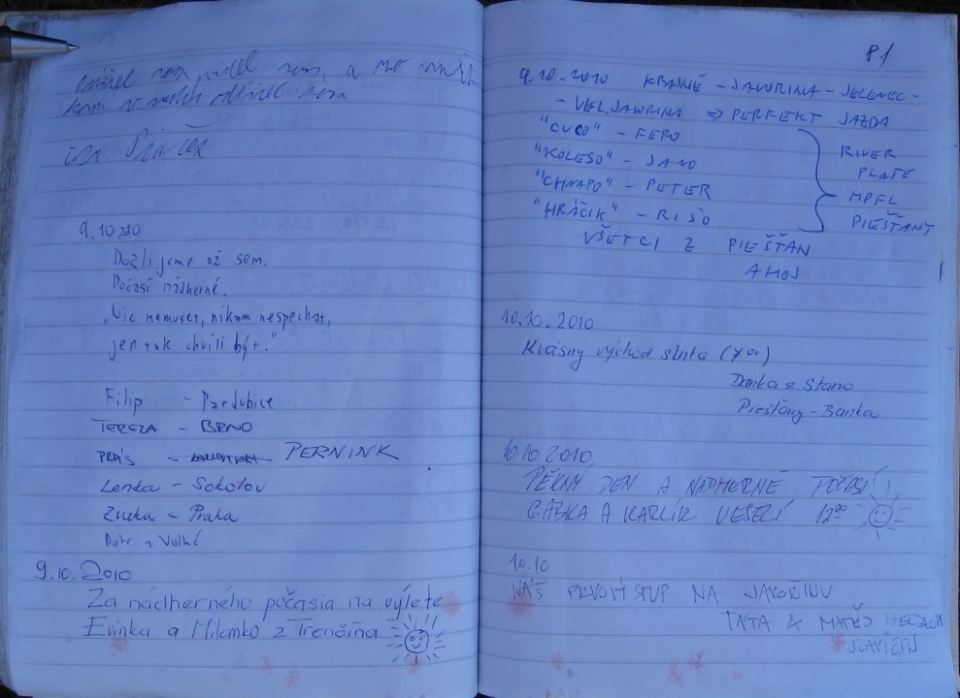 videl som, a
kam
9.10.2010
Došli jsme až sem.
Počasí nádherné.
„Nic nemuset, nikam nespěchat,
jen tak chvíli být."
Filip - Pardubice
TEREZA - BRNO
- PERNINK
Lenka - Sokolov
Zuzka - Praha
Petr z
9.10.2010
Za nádherného počasia na výlete
Evinka a Milanko z Trenčína
81
9.10.2010 KRAJNÉ - JAVORINA - JELENEC -
- VEL. JAVORINA => PERFEKT JAZDA
"CUCO" - FERO
"KOLESO" - JANO
"CHNAPO" - PETER
"HRÁČIK" - RIŠO
RIVER
PLATE
MPFL
PIEŠŤANY
VŠETCI Z PIEŠŤAN
AHOJ
10.10.2010
Krásny východ slnka (7⁰⁰)
Danka a Stano
Piešťany - Banka
10.10.2010
PĚKNÝ DEN A NÁDHERNÉ POČASÍ!
GÁBKA A KARLÍK VESELÍ 12⁰⁰
10.10
NÁŠ PRVOVÝSTUP NA JAVOŘINU
TAŤA & MATĚJ
SLAVIČÍN